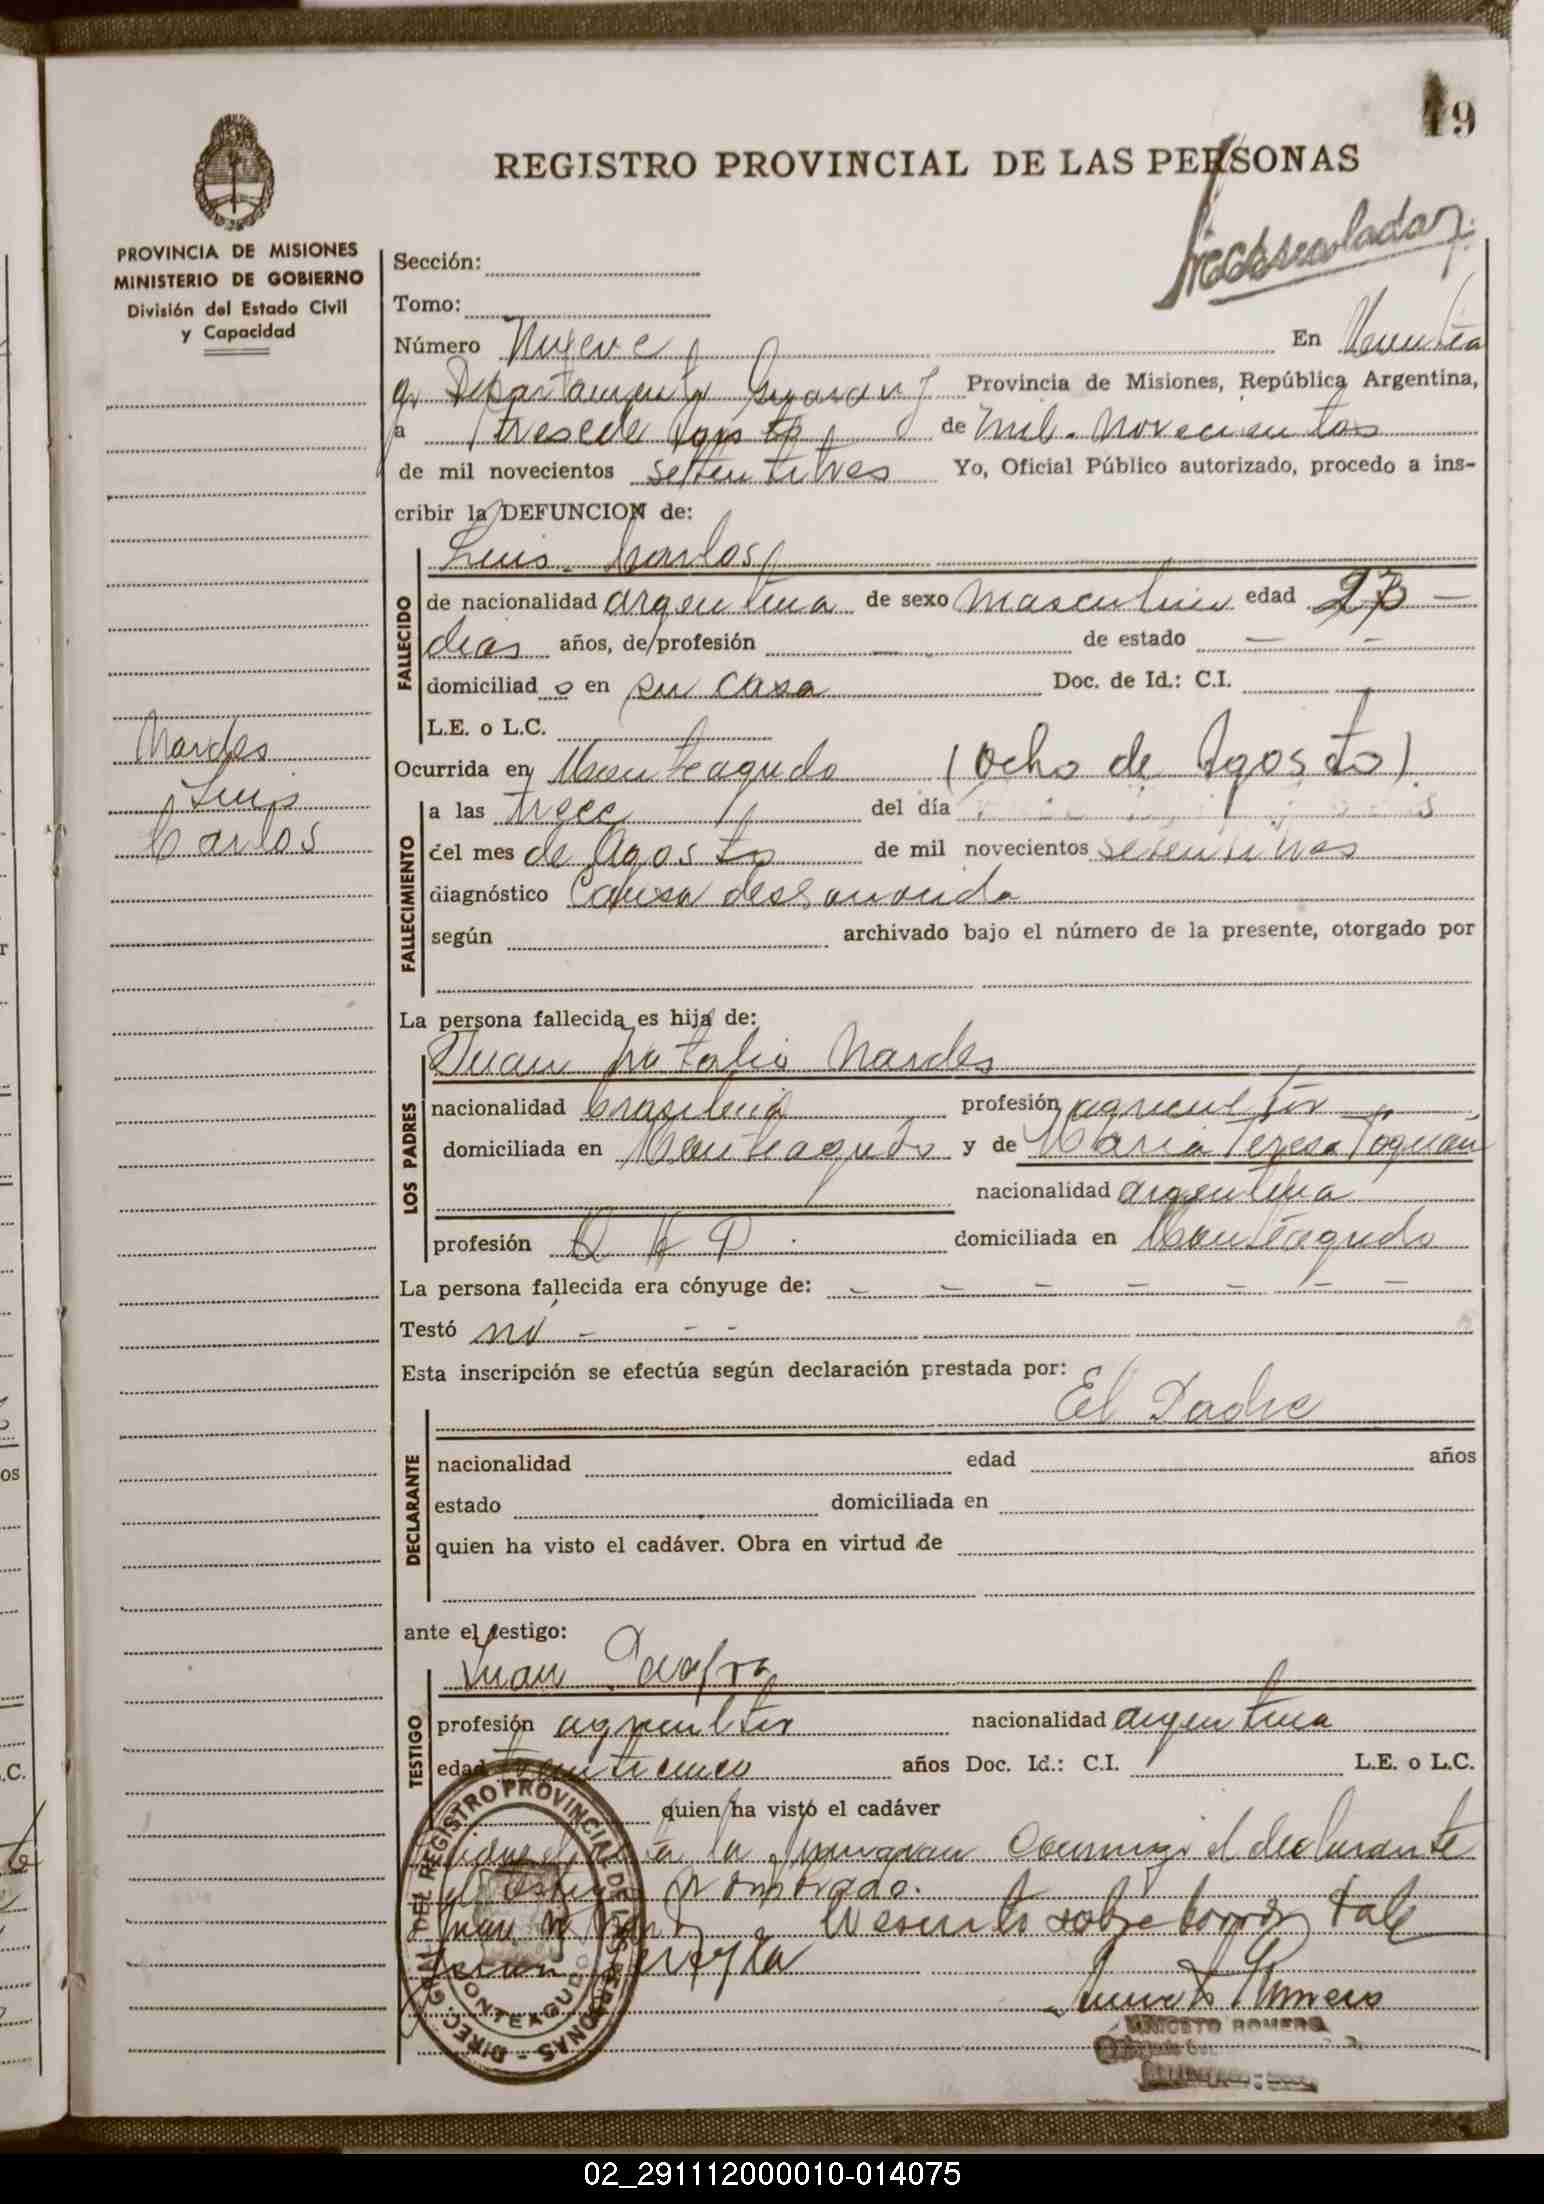 19
REGISTRO PROVINCIAL DE LAS PERSONAS
PROVINCIA DE MISIONES
MINISTERIO DE GOBIERNO
División del Estado Civil
y Capacidad
Sección:
Tomo:
Número Nueve En
Departamento Guaraní Provincia de Misiones, República Argentina,
a trece de Agosto de mil novecientos
de mil novecientos setentitres Yo, Oficial Público autorizado, procedo a ins-
cribir la DEFUNCION de:
Luis Carlos
FALLECIDO
de nacionalidad argentina de sexo masculino edad
dias años, de profesión de estado
domiciliad o en su casa Doc. de Id.: C.I.
L.E. o L.C.
Nardes
Luis
Carlos
Ocurrida en Monteagudo (Ocho de Agosto)
FALLECIMIENTO
a las trece del día
del mes de Agosto de mil novecientos setentitres
diagnóstico Causa
según archivado bajo el número de la presente, otorgado por
La persona fallecida es hija de:
Juan Natalio Nardes
LOS PADRES
nacionalidad brasilena profesión agricultor
domiciliada en Monteagudo y de Maria Teresa
nacionalidad argentina
profesión Q H D domiciliada en Monteagudo
La persona fallecida era cónyuge de:
Testó no
Esta inscripción se efectúa según declaración prestada por:
El Padre
DECLARANTE
nacionalidad edad años
estado domiciliada en
quien ha visto el cadáver. Obra en virtud de
ante el testigo:
Juan
TESTIGO
profesión agricultor nacionalidad argentina
edad treinticinco años Doc. Id.: C.I. L.E. o L.C.
quien ha visto el cadáver
la firmaran conmigo el declarante
y el testigo nombrado.
sobre borrado vale
DIREC. GRAL DEL REGISTRO PROVINCIAL DE LAS PERSONAS
MONTEAGUDO
ANICETO ROMERO
02_291112000010-014075